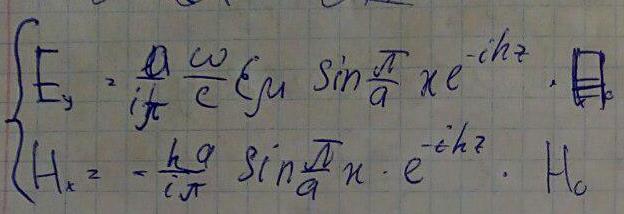 E_y = a/(iπ) ω/c εμ sin π/a x e^{-ihz} ·
H_x = - ha/(iπ) sin π/a x · e^{-ihz} · H_0